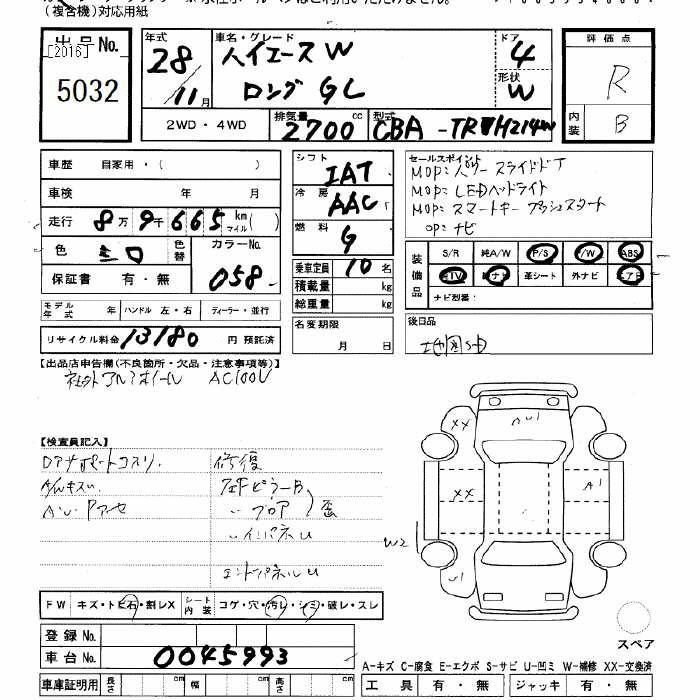 (複合機)対応用紙
出品No.
[2016]
5032
年式 28/11月
車名・グレード
ハイエースW
ロング GL
ドア 4
形状 W
評価点
R
内装 B
2WD・4WD
排気量 2700 cc
型式 CBA-TRH214W
車歴 自家用・( )
車検 年 月
走行 8万9千665 km マイル( )
色 シロ
色替
カラーNo. 058
保証書 有・無
モデル年式 年 ハンドル 左・右 ディーラー・並行
リサイクル料金 13180 円 預託済
シフト IAT
冷房 AAC
燃料 G
乗車定員 10 名
積載量 kg
総重量 kg
名変期限
月 日
セールスポイント
MOP:パワースライドドア
MOP:LEDヘッドライト
MOP:スマートキー プッシュスタート
OP:ナビ
装備品
S/R 純A/W P/S P/W ABS
純TV 純ナビ 革シート 外ナビ エアB
ナビ型番:
後日品
地図SD
【出品店申告欄(不良箇所・欠品・注意事項等)】
社外アルミホイール AC100V
【検査員記入】
Dアサポートコスリ.
修復
A/Wキズ
左Fピラー B
〃フロア 歪
〃インパネ U
エンドパネル U
FW キズ・トビ石・割レX
シート内装 コゲ・穴・汚レ・シミ・破レ・スレ
登録No.
車台No. 0045993
車庫証明用 長さ cm 幅 cm 高さ cm
XX
XX
A1
W2
U1
スペア
A-キズ C-腐食 E-エクボ S-サビ U-凹ミ W-補修 XX-交換済
工具 有・無 ジャッキ 有・無